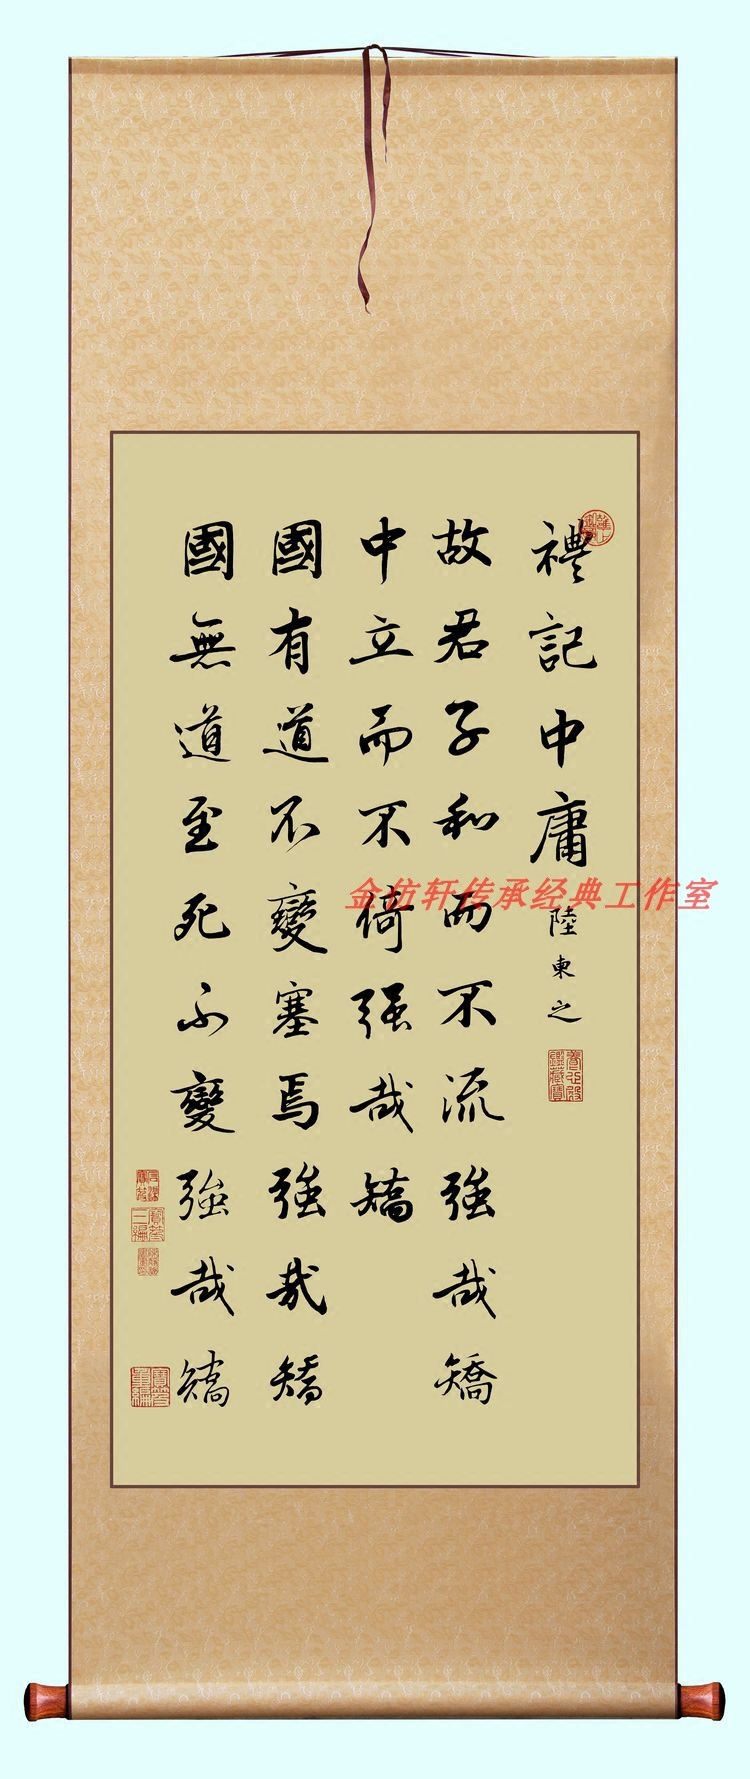 禮記中庸
陸柬之
故君子和而不流強哉矯
中立而不倚强哉矯
國有道不變塞焉強哉矯
國無道至死不變強哉矯
金仿轩传承经典工作室